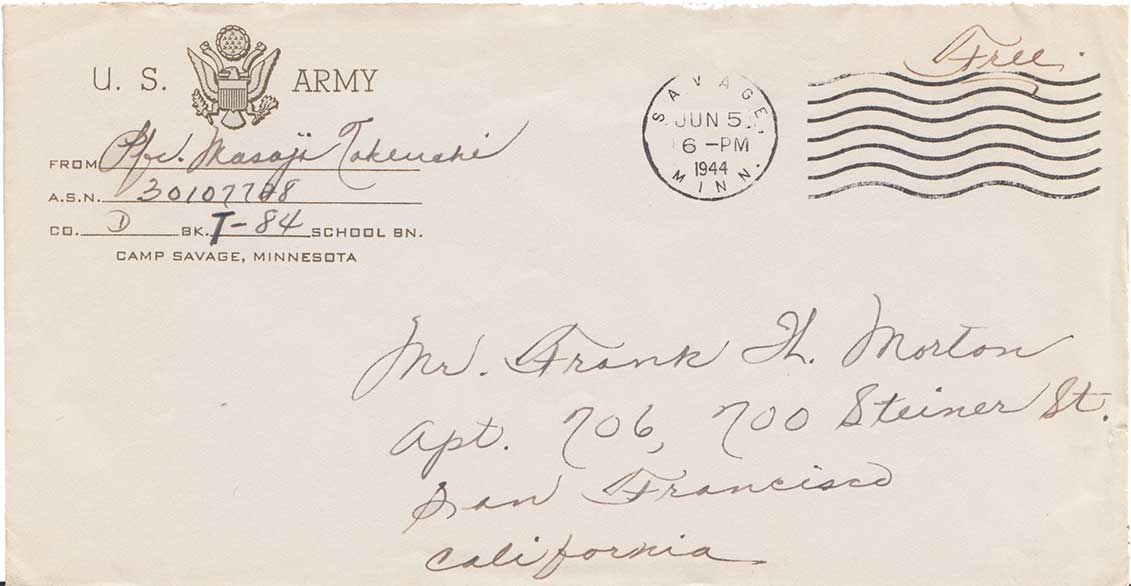 Free.
U. S. ARMY
FROM Pfc. Masaji Takeushi
A.S.N. 30107708
CO. D BK. T-84 SCHOOL BN.
CAMP SAVAGE, MINNESOTA
SAVAGE,
JUN 5
6-PM
1944
MINN.
Mr. Frank H. Morton
Apt. 706, 700 Steiner St.
San Francisco
California